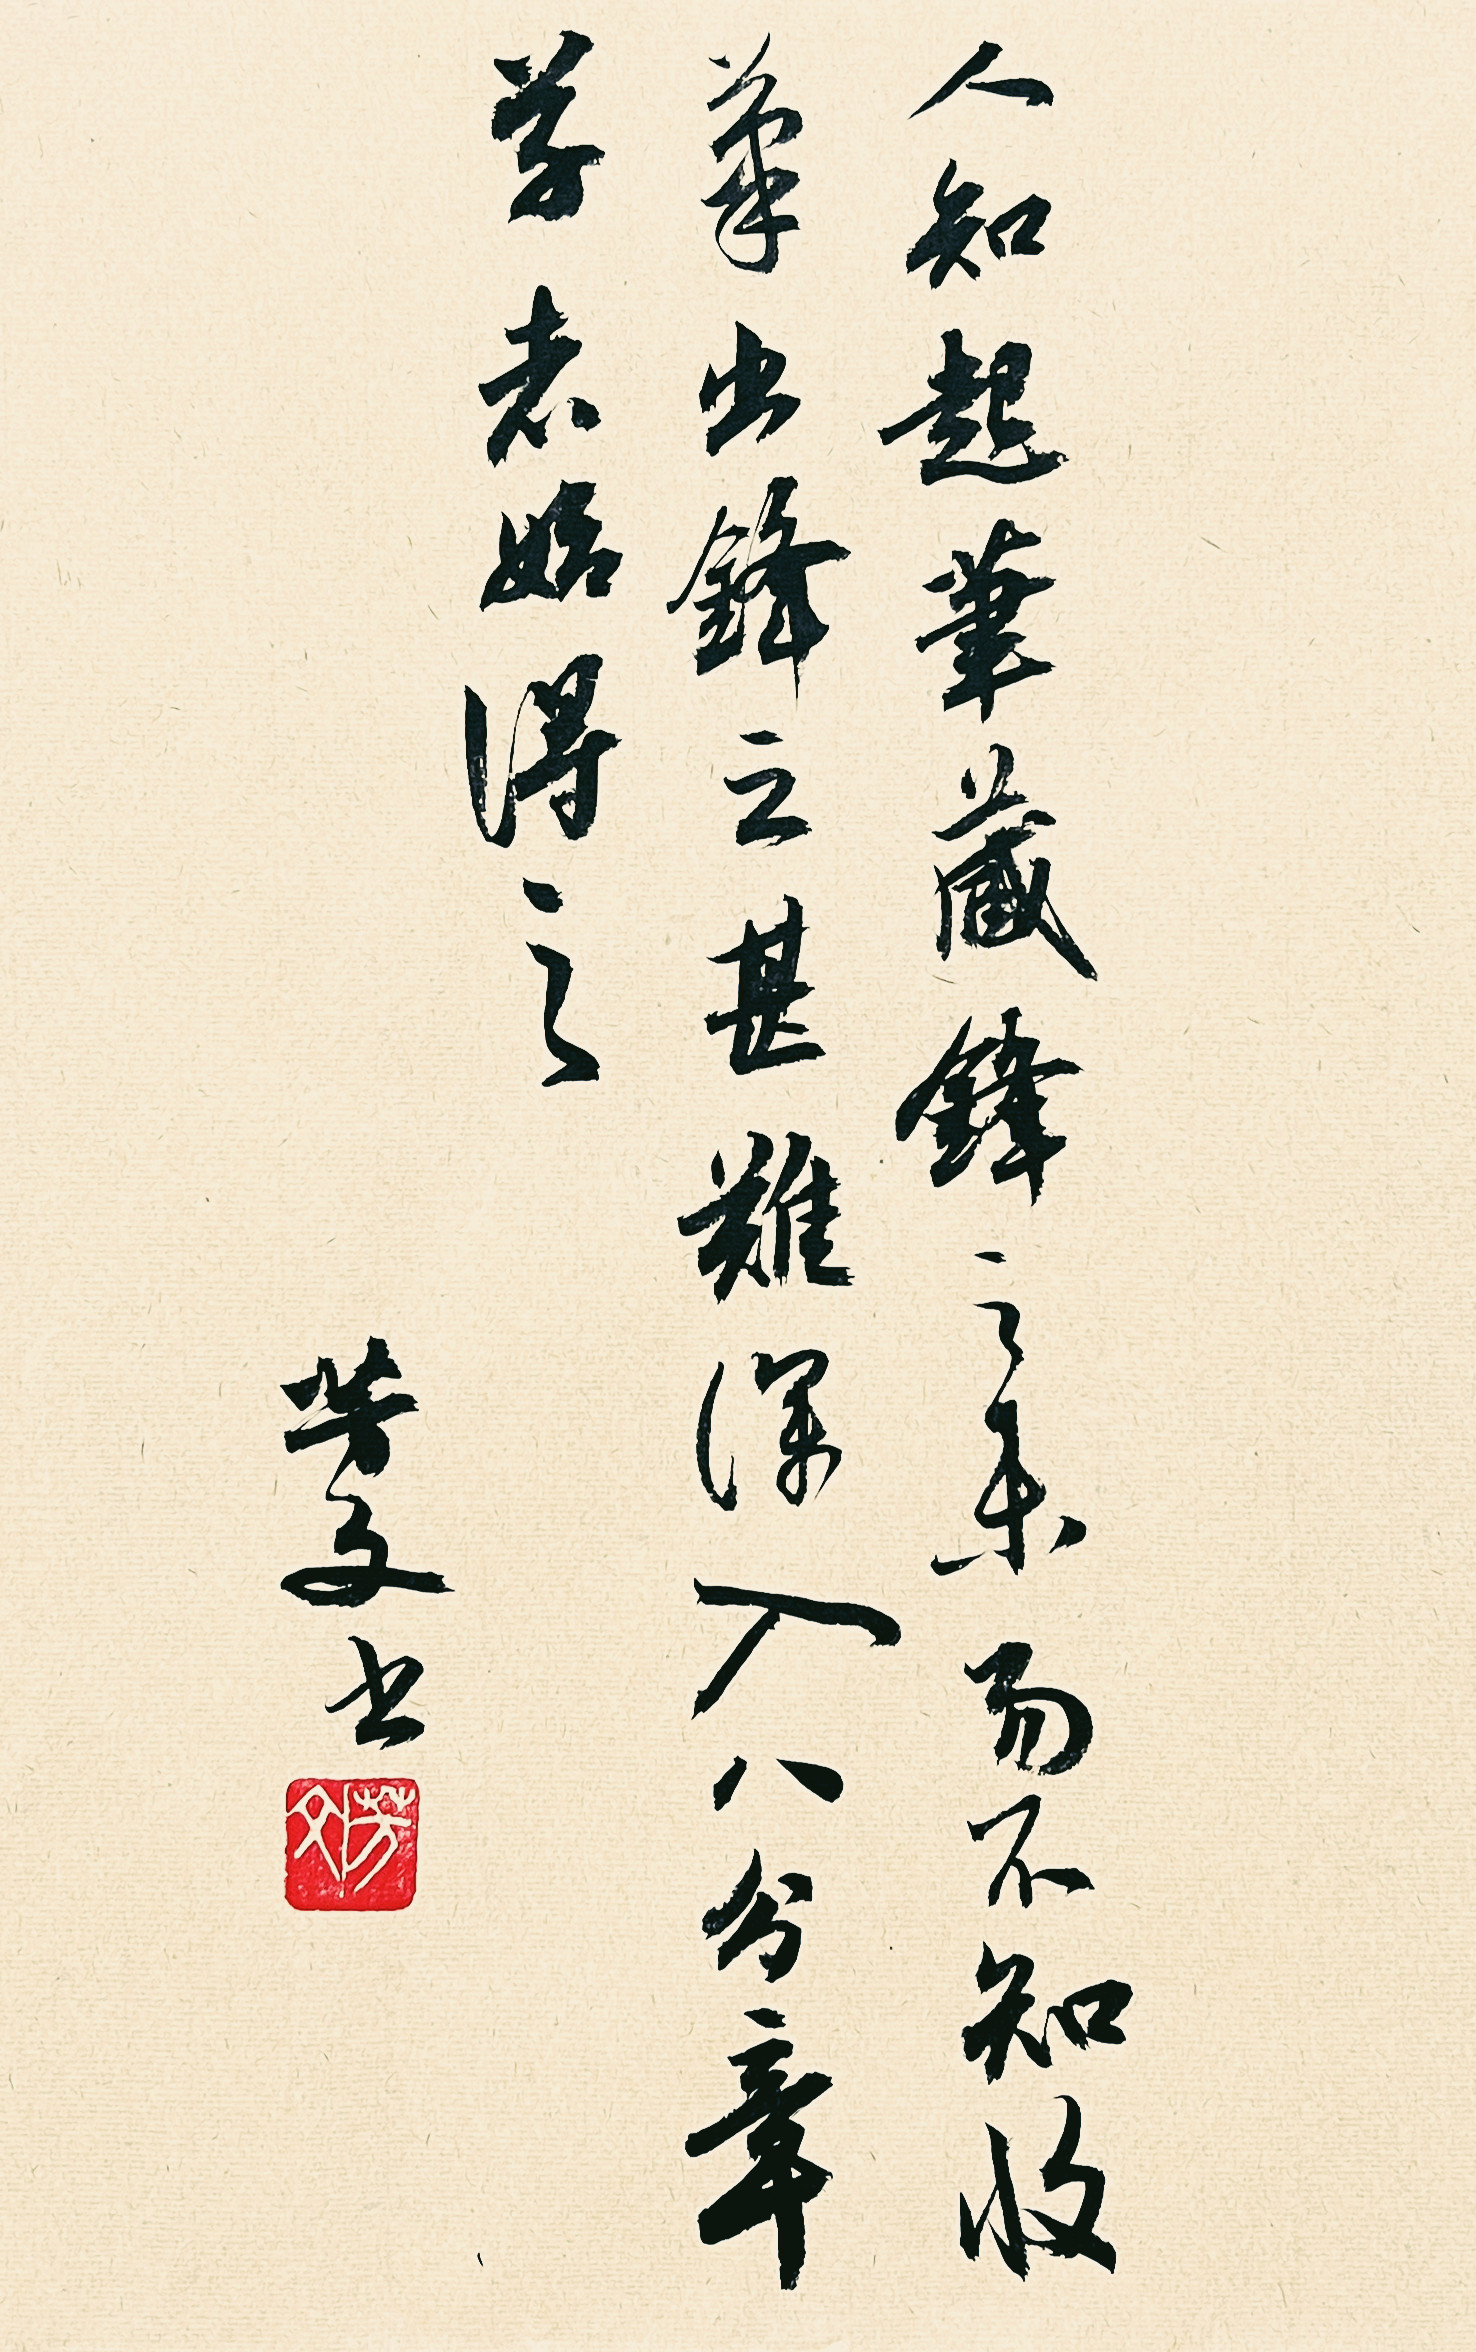 人知起筆藏鋒之未易不知收
筆出鋒之甚難深入八分章
草者始得之
芳文书
芳文